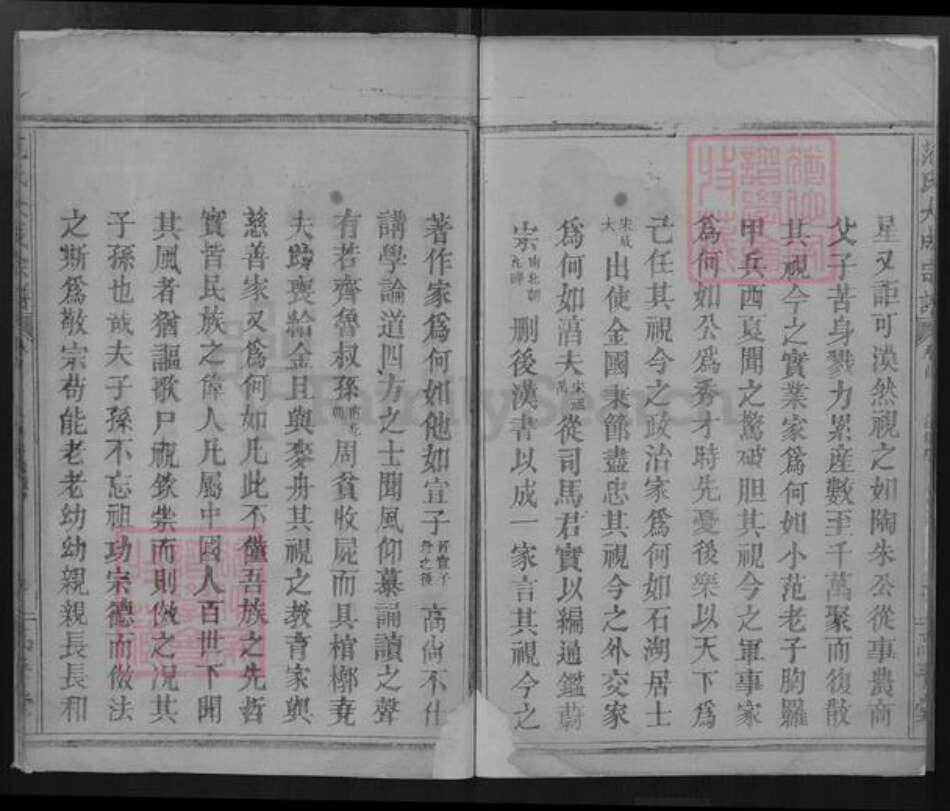 范氏大成宗譜
星又詎可漠然視之如陶朱公從事農商
父子苦身戮力累産數至千萬聚而復散
其視今之實業家爲何如小范老子胸羅
甲兵西夏聞之驚破胆其視今之軍事家
爲何如公爲秀才時先憂後樂以天下爲
己任其視今之政治家爲何如石湖居士
宋成大出使金國末節盡忠其視今之外交家
爲何如湻夫宋從司馬君實以編通鑑蔚
宗南北朝刪後漢書以成一家言其視今之
著作家爲何如他如宣子高尙不仕
講學論道四方之士聞風仰慕誦讀之聲
有若齊魯叔孫南北朝周貧收屍而具棺槨堯
夫助喪給金且與麥舟其視之教育家與
慈善家又爲何如凡此不僅吾族之先哲
實皆民族之偉人凡屬中國人百世下聞
其風者猶謳歌尸祝欽崇而則傚之况其
子孫也哉夫子孫不忘祖功宗德而傚法
之斯爲敬宗苟能老老幼幼親親長長和
FamilySearch